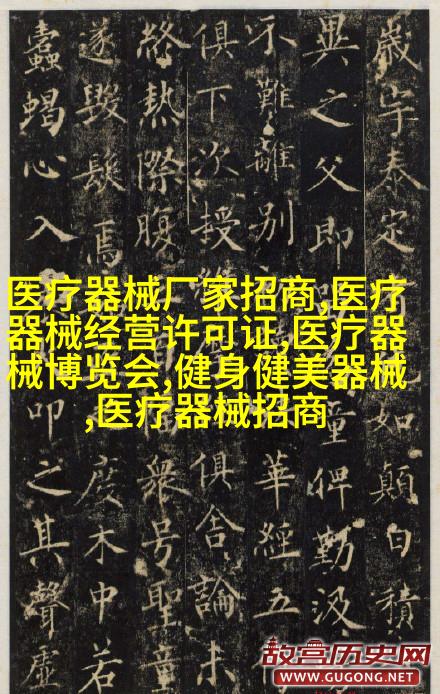 歲宇泰定如顛白積
異之父即童俾勤汲
不難離別華經五
俱下次授俱舍論未
終熱際腹眾号聖童
遂毀髮焉度木中若
蠹蝎心入叩之其聲虛
医疗器械厂家招商,医疗
器械经营许可证,医疗器
械博览会,健身健美器械
,医疗器械招商
故宫历史网
WWW.GUGONG.NET